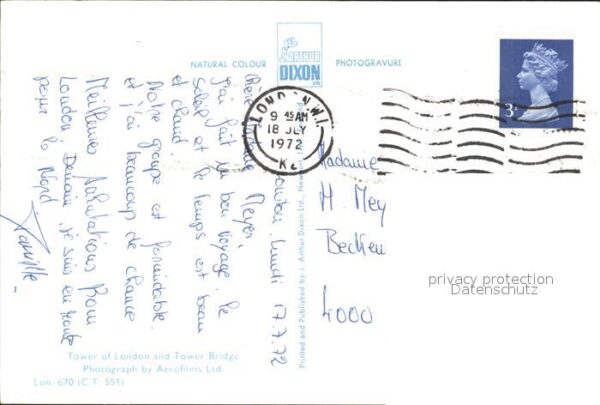 NATURAL COLOUR
J. ARTHUR
DIXON
PHOTOGRAVURE
3
LONDON N.W.1.
9 45 AM
18 JLY
1972
London, lundi 17.7.72
Chère Madame Meyer,
J'ai fait un bon voyage, le
soleil et le temps est beau
et chaud.
Notre groupe est formidable
et j'ai beaucoup de chance
Meilleures salutations from
London, Demain, je suis en route
pour le Nord
Madame
H. Mey
Becken
4000
privacy protection
Datenschutz
Printed and Published by J. Arthur Dixon Ltd.,
Tower of London and Tower Bridge
Photograph by Aerofilms Ltd.
Lon. 670 (C.T. 551)